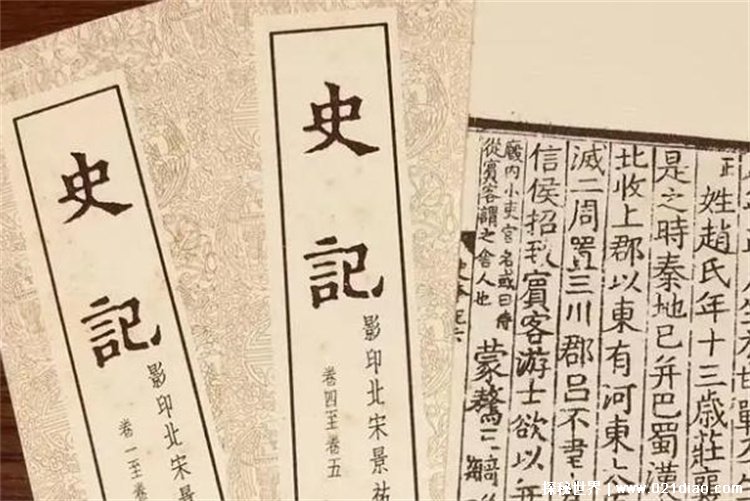 史記
影印北宋景
卷一至卷
史記
影印北宋景祐
卷四至卷五
正姓趙氏年十三歲莊
是之時秦地已并巴蜀漢
北收上郡以東有河東
滅二周置三川郡呂不韋
信侯招致賓客游士欲以并
廄內小吏官名或曰侍
從賓客謂之舍人也
蒙驁王齮
探秘世界 | www.021diaq.com